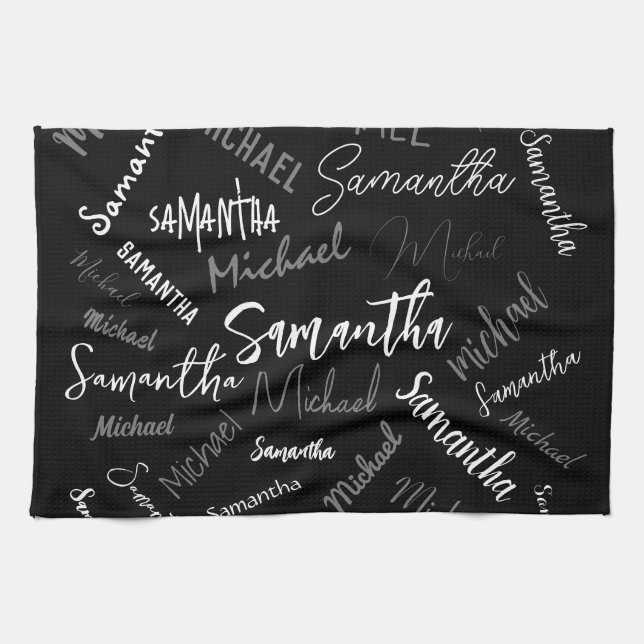 Samantha
MICHAEL
Samantha
SAMANTHA
Samantha
Michael
Michael
SAMANTHA
Michael
Michael
Samantha
Michael
Samantha
Michael
Samantha
Samantha
Michael
Michael
Michael
Samantha
Michael
Samantha
Michael
Samantha